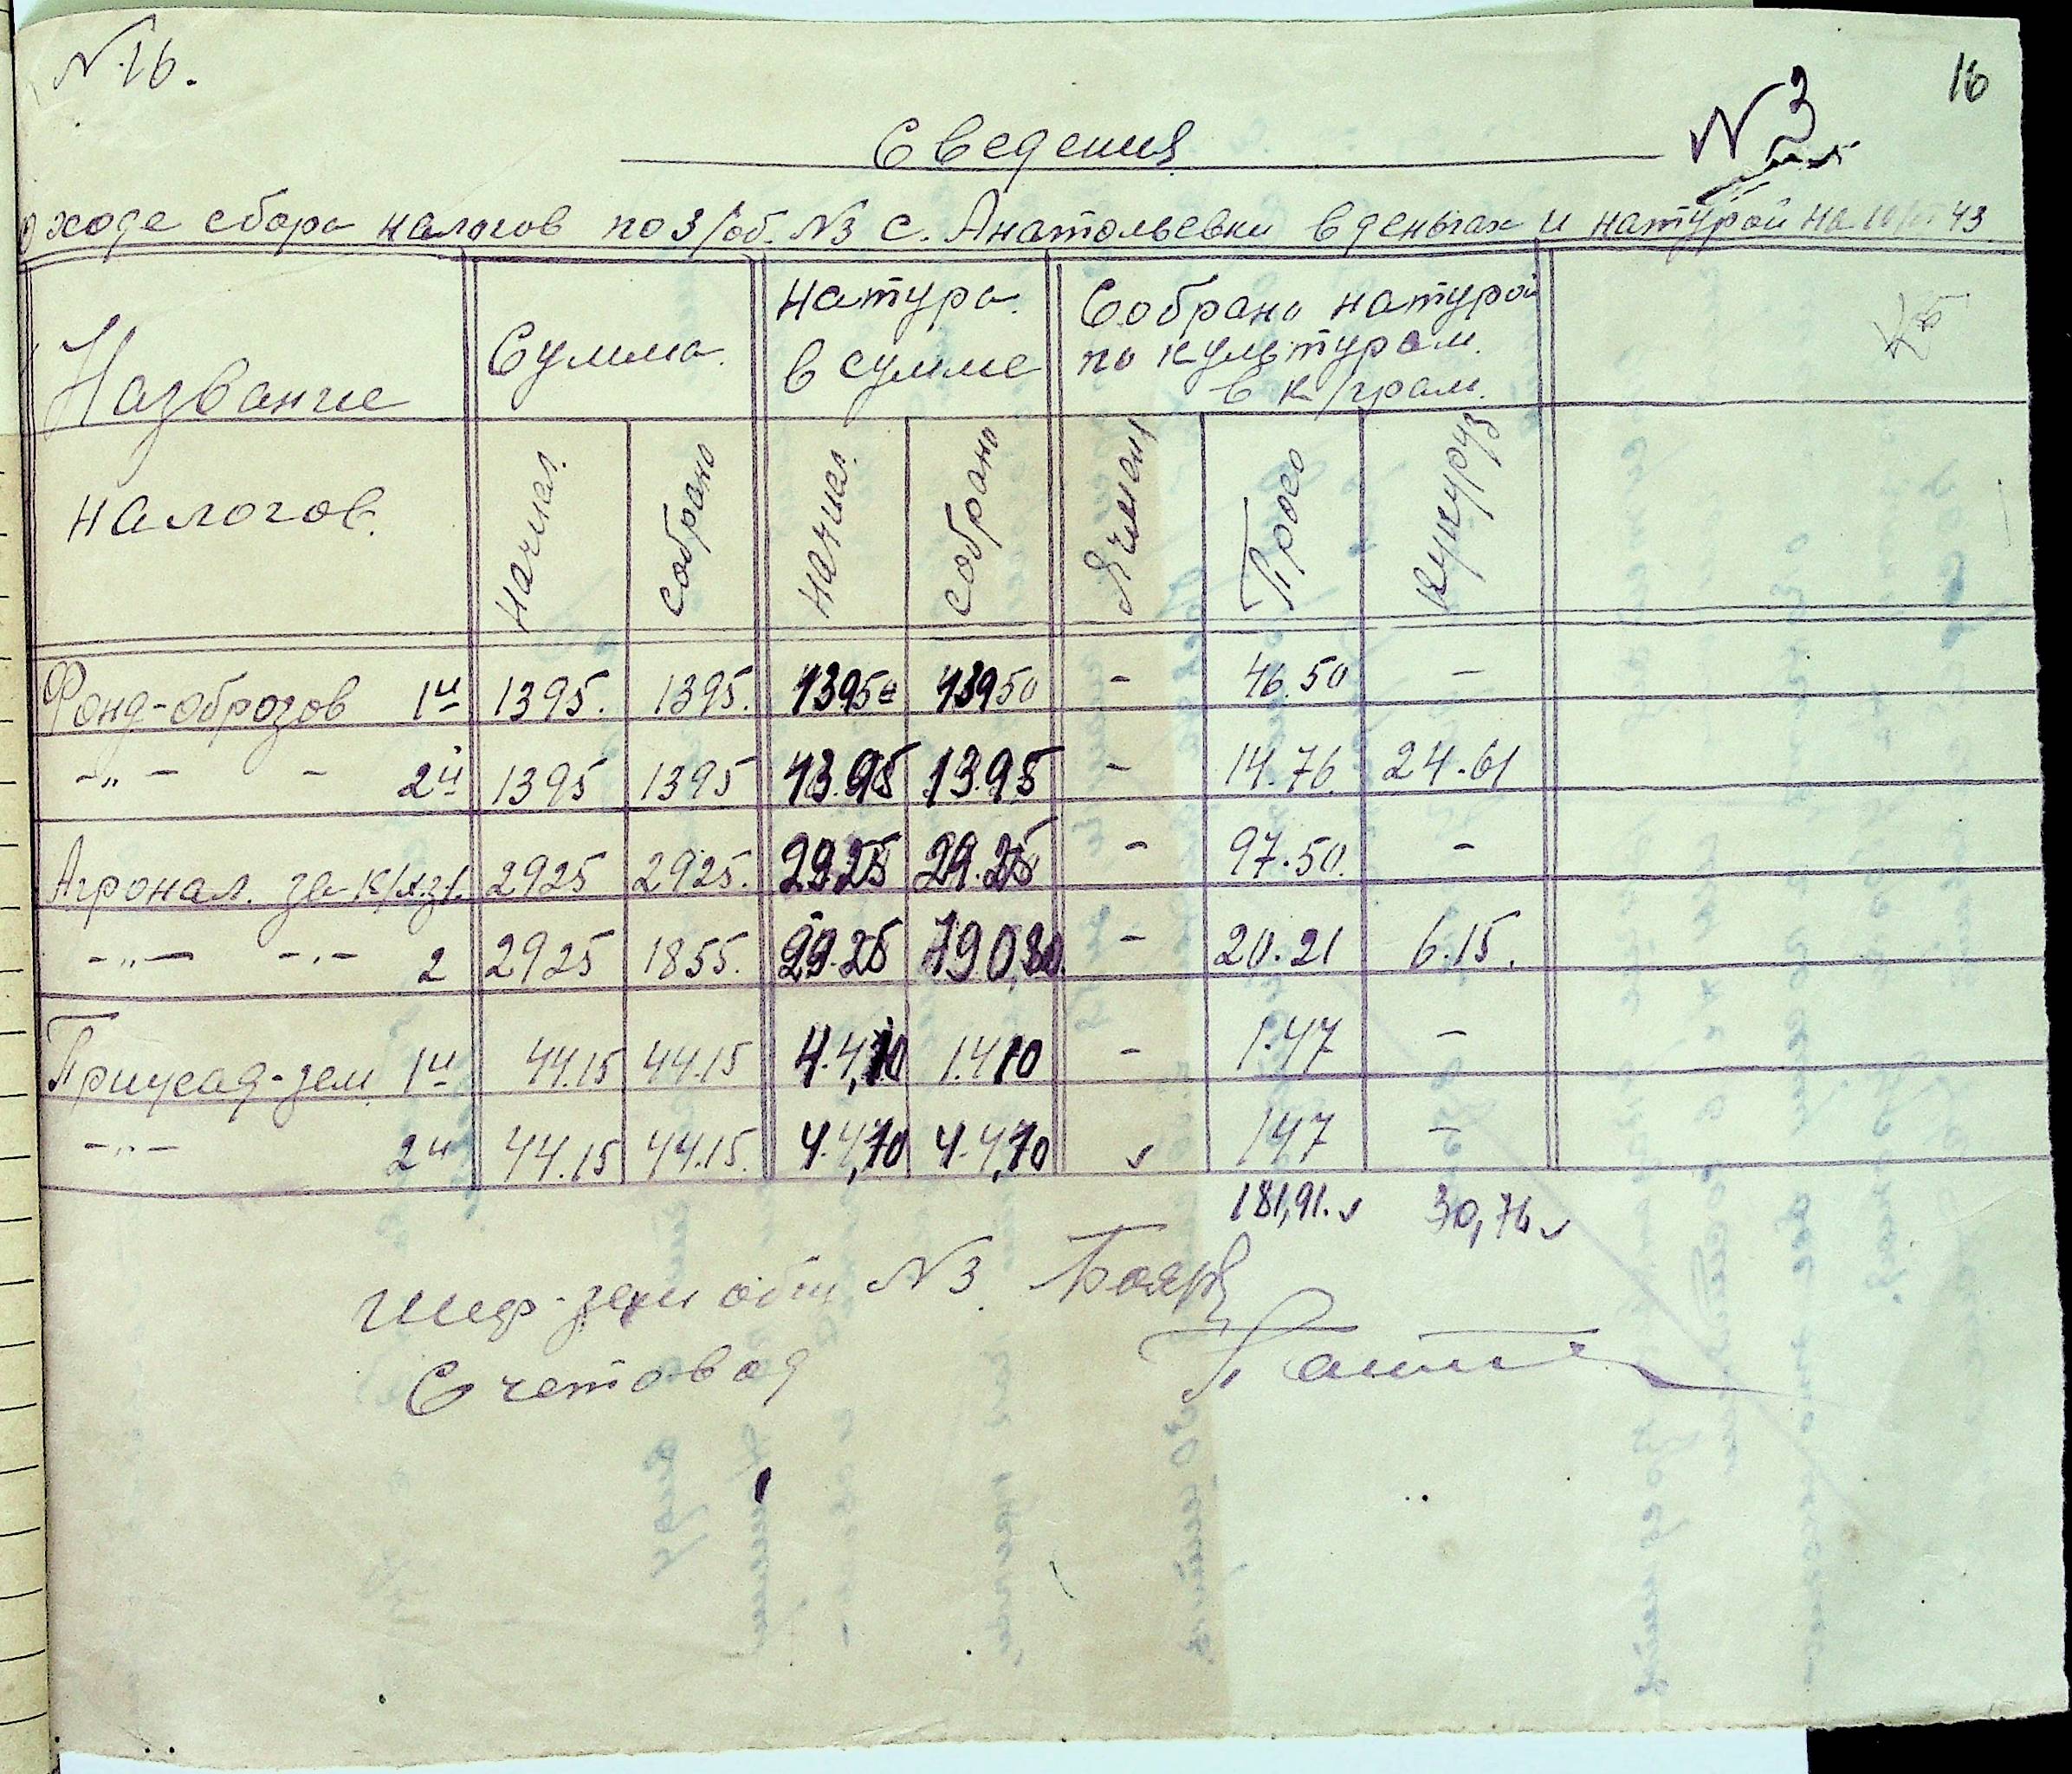 N.16.
16
N3
Сведения
о ходе сбора налогов по з/об. N3 с. Анатольевки в деньгах и натурой на 43
Название налогов.
Сумма.
натура в сумме
Собрано натурой по культурам. в к/грам.
начисл. собрано начисл. собрано Ячмень Просо кукуруз
Фонд-оброзов 1й 1395. 1395. 13950 13950 - 46.50 -
-„- - 2й 1395 1395 13.95 13.95 - 14.76 24.61
Агронал. за к/х.з 1. 2925 2925. 29.25 29.25 - 97.50. -
-„- -„- 2 2925 1855. 29.25 190,30. - 20.21 6.15.
Приусад-зем 1й 44.15 44.15 4.4,10 1.410 - 1.47 -
-„- 2й 44.15 44.15. 4.4,10 4.4,10 v 1.47 -
181,91. v 30,76 v
шеф-зем общ N3. Бояр
Счетовод